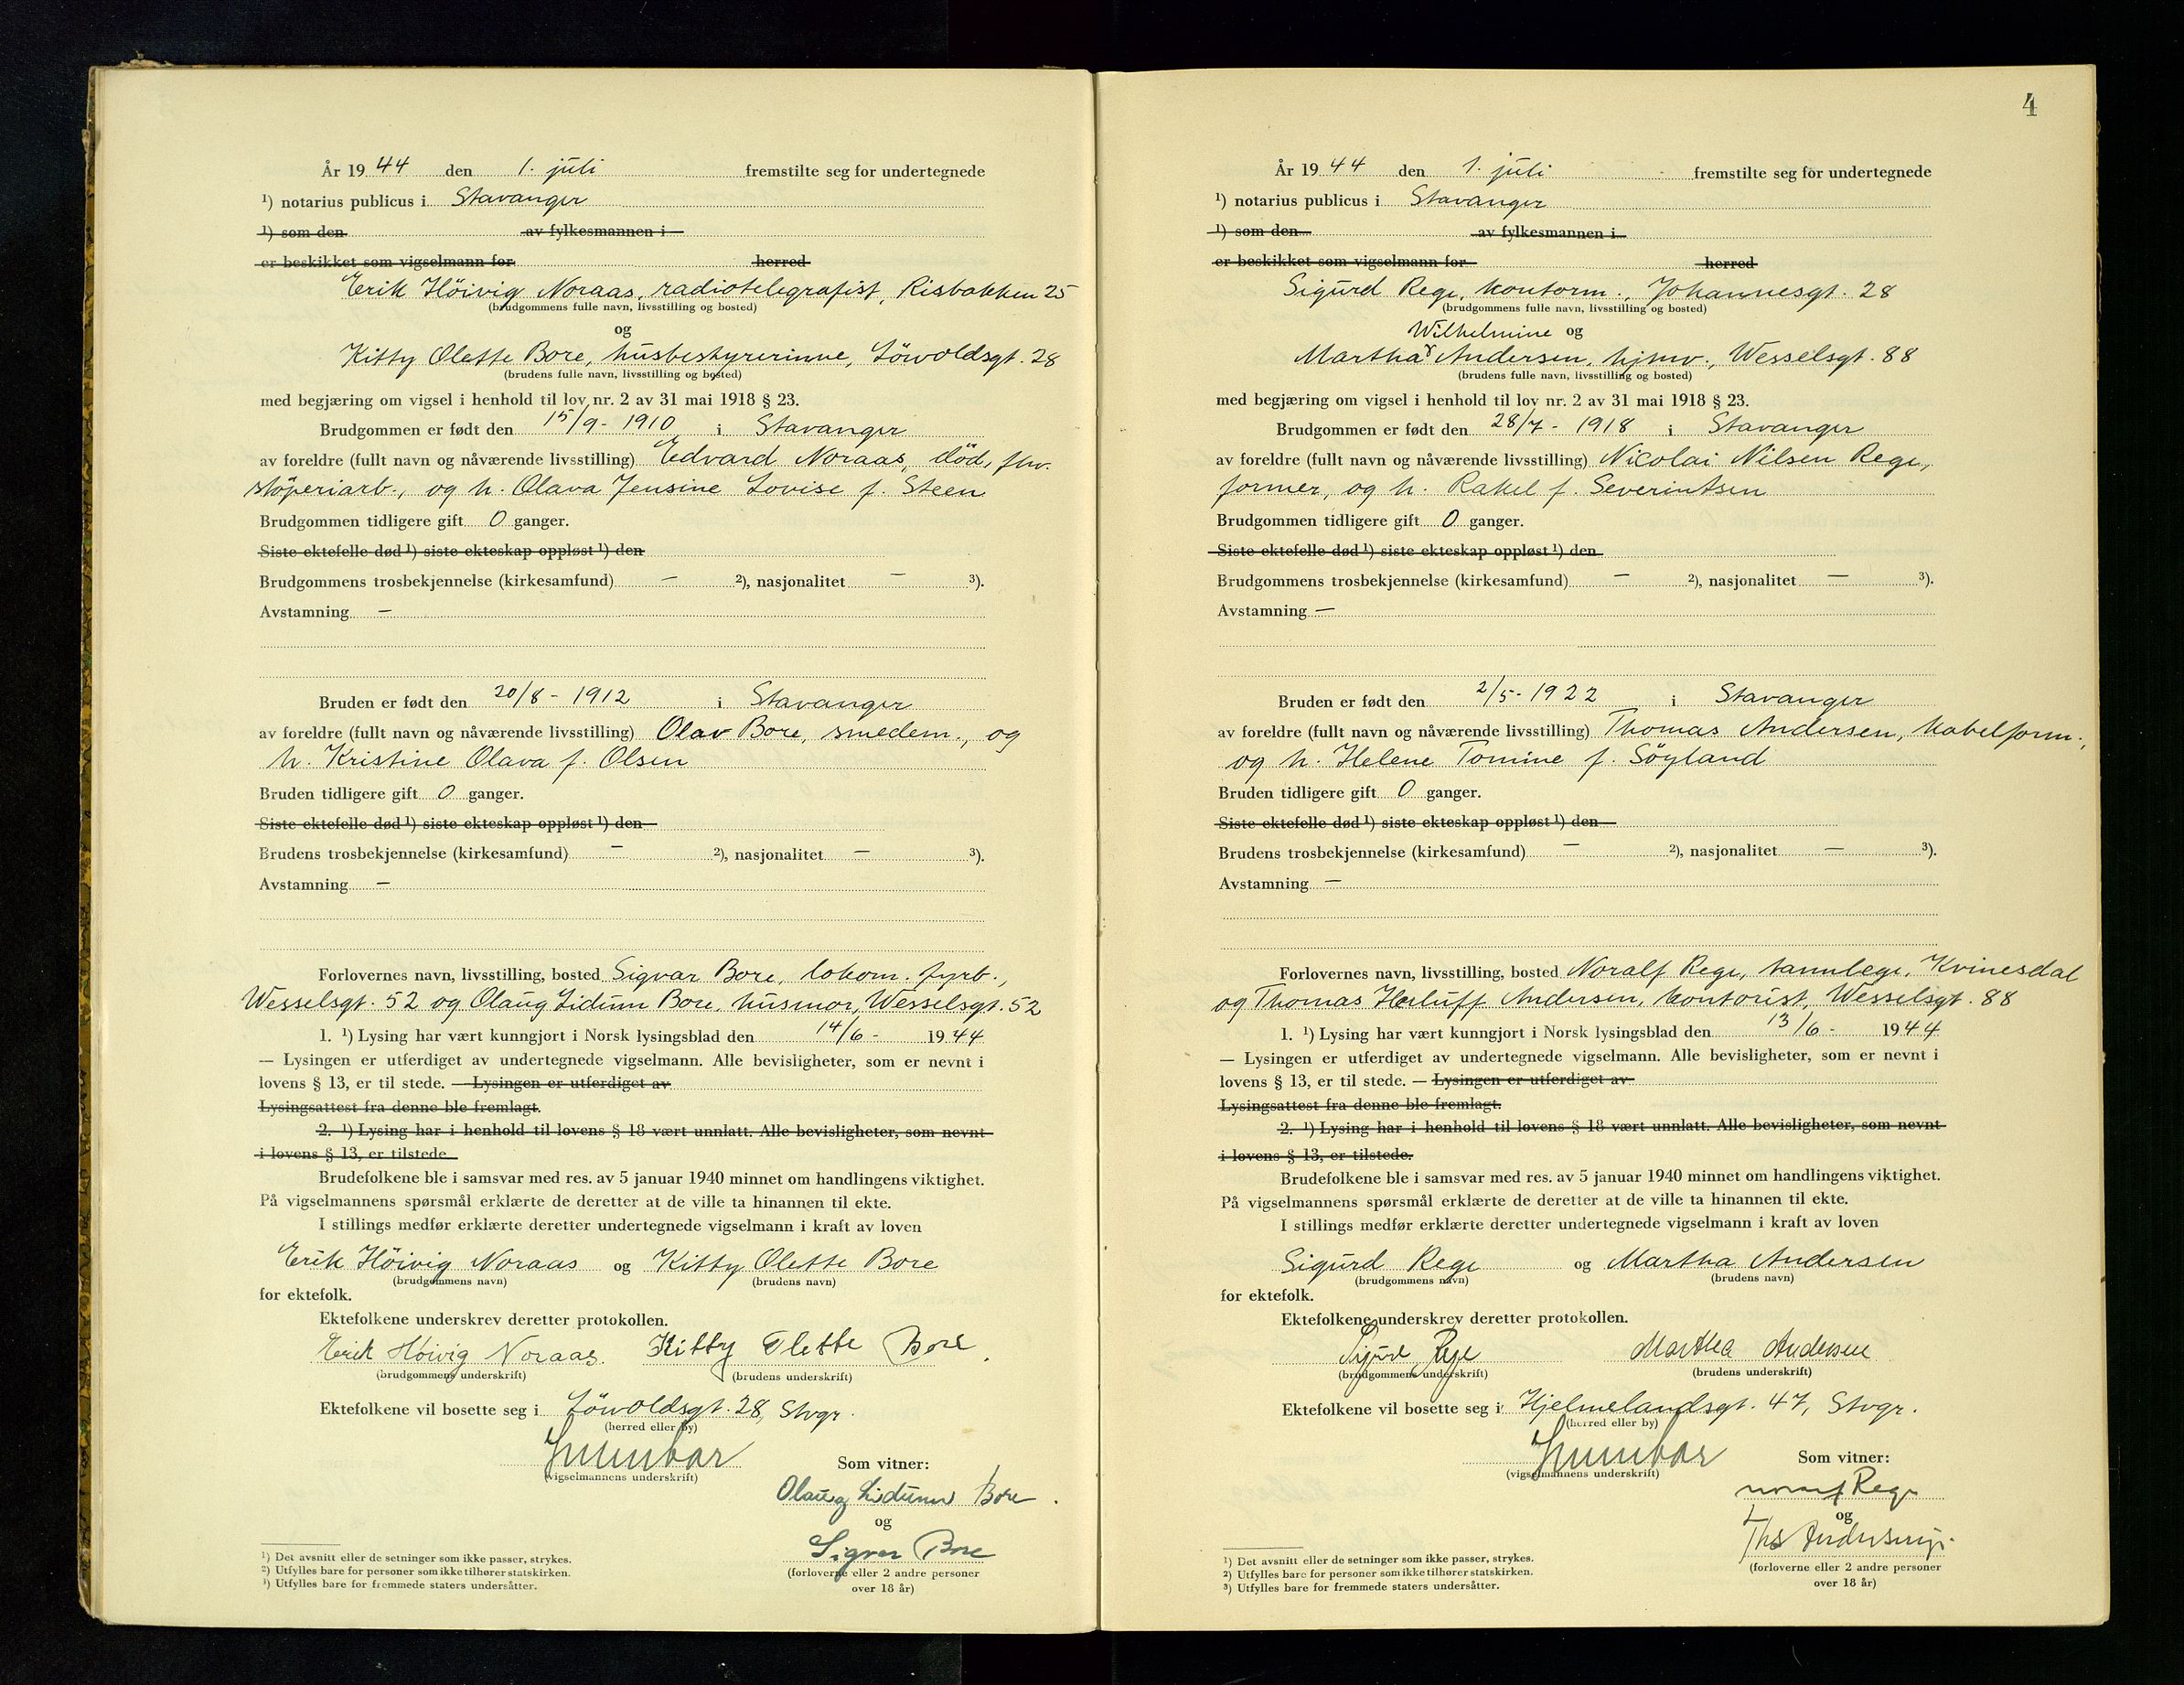 År 1944 den 1. juli fremstilte seg for undertegnede
¹) notarius publicus i Stavanger
¹) som den av fylkesmannen i
er beskikket som vigselmann for herred
Erik Höivig Noraas, radiotelegrafist, Risbakken 25
(brudgommens fulle navn, livsstilling og bosted)
og
Kitty Olette Bore, husbestyrerinne, Lövoldsgt. 28
(brudens fulle navn, livsstilling og bosted)
med begjæring om vigsel i henhold til lov nr. 2 av 31 mai 1918 § 23.
Brudgommen er født den 15/9 - 1910 i Stavanger
av foreldre (fullt navn og nåværende livsstilling) Edvard Noraas, död, fhv.
støperiarb., og h. Olava Jensine Lovise f. Steen
Brudgommen tidligere gift 0 ganger.
Siste ektefelle død ¹) siste ekteskap oppløst ¹) den
Brudgommens trosbekjennelse (kirkesamfund) — ²), nasjonalitet — ³).
Avstamning —
Bruden er født den 20/8 - 1912 i Stavanger
av foreldre (fullt navn og nåværende livsstilling) Olav Bore, smedem., og
h. Kristine Olava f. Olsen
Bruden tidligere gift 0 ganger.
Siste ektefelle død ¹) siste ekteskap oppløst ¹) den
Brudens trosbekjennelse (kirkesamfund) — ²), nasjonalitet — ³).
Avstamning —
Forlovernes navn, livsstilling, bosted Sigvar Bore, lokom. fyrb.,
Wesselsgt. 52 og Olaug Lidunn Bore, husmor, Wesselsgt. 52
1. ¹) Lysing har vært kunngjort i Norsk lysingsblad den 14/6 - 1944
— Lysingen er utferdiget av undertegnede vigselmann. Alle bevisligheter, som er nevnt i
lovens § 13, er til stede. — Lysingen er utferdiget av
Lysingsattest fra denne ble fremlagt.
2. ¹) Lysing har i henhold til lovens § 18 vært unnlatt. Alle bevisligheter, som nevnt
i lovens § 13, er tilstede
Brudefolkene ble i samsvar med res. av 5 januar 1940 minnet om handlingens viktighet.
På vigselmannens spørsmål erklærte de deretter at de ville ta hinannen til ekte.
I stillings medfør erklærte deretter undertegnede vigselmann i kraft av loven
Erik Höivig Noraas og Kitty Olette Bore
(brudgommens navn) (brudens navn)
for ektefolk.
Ektefolkene underskrev deretter protokollen.
Erik Höivig Noraas. Kitty Olette Bore.
(brudgommens underskrift) (brudens underskrift)
Ektefolkene vil bosette seg i Lövoldsgt. 28, Stvgr.
(herred eller by)
(vigselmannens underskrift) Som vitner:
Olaug Lidunn Bore.
og
Sigvar Bore
(forloverne eller 2 andre personer
over 18 år)
¹) Det avsnitt eller de setninger som ikke passer, strykes.
²) Utfylles bare for personer som ikke tilhører statskirken.
³) Utfylles bare for fremmede staters undersåtter.
4
År 1944 den 1. juli fremstilte seg for undertegnede
¹) notarius publicus i Stavanger
¹) som den av fylkesmannen i
er beskikket som vigselmann for herred
Sigurd Rege, kontorm., Johannesgt. 28
(brudgommens fulle navn, livsstilling og bosted)
Wilhelmine og
Martha Andersen, hjmv., Wesselsgt. 88
(brudens fulle navn, livsstilling og bosted)
med begjæring om vigsel i henhold til lov nr. 2 av 31 mai 1918 § 23.
Brudgommen er født den 28/7 - 1918 i Stavanger
av foreldre (fullt navn og nåværende livsstilling) Nicolai Nilsen Rege,
former, og h. Rakel f. Severintsen
Brudgommen tidligere gift 0 ganger.
Siste ektefelle død ¹) siste ekteskap oppløst ¹) den
Brudgommens trosbekjennelse (kirkesamfund) — ²), nasjonalitet — ³).
Avstamning —
Bruden er født den 2/5 - 1922 i Stavanger
av foreldre (fullt navn og nåværende livsstilling) Thomas Andersen, kabelform.,
og h. Helene Tomine f. Söyland
Bruden tidligere gift 0 ganger.
Siste ektefelle død ¹) siste ekteskap oppløst ¹) den
Brudens trosbekjennelse (kirkesamfund) — ²), nasjonalitet — ³).
Avstamning —
Forlovernes navn, livsstilling, bosted Noralf Rege, tannlege, Kvinesdal
og Thomas Herluff Andersen, kontorist, Wesselsgt. 88
1. ¹) Lysing har vært kunngjort i Norsk lysingsblad den 13/6 - 1944
— Lysingen er utferdiget av undertegnede vigselmann. Alle bevisligheter, som er nevnt i
lovens § 13, er til stede. — Lysingen er utferdiget av
Lysingsattest fra denne ble fremlagt.
2. ¹) Lysing har i henhold til lovens § 18 vært unnlatt. Alle bevisligheter, som nevnt
i lovens § 13, er tilstede.
Brudefolkene ble i samsvar med res. av 5 januar 1940 minnet om handlingens viktighet.
På vigselmannens spørsmål erklærte de deretter at de ville ta hinannen til ekte.
I stillings medfør erklærte deretter undertegnede vigselmann i kraft av loven
Sigurd Rege og Martha Andersen
(brudgommens navn) (brudens navn)
for ektefolk.
Ektefolkene underskrev deretter protokollen.
Sigurd Rege Martha Andersen
(brudgommens underskrift) (brudens underskrift)
Ektefolkene vil bosette seg i Hjelmelandsgt. 47, Stvgr.
(herred eller by)
(vigselmannens underskrift) Som vitner:
Noralf Rege
og
Ths Andersen jr.
(forloverne eller 2 andre personer
over 18 år)
¹) Det avsnitt eller de setninger som ikke passer, strykes.
²) Utfylles bare for personer som ikke tilhører statskirken.
³) Utfylles bare for fremmede staters undersåtter.